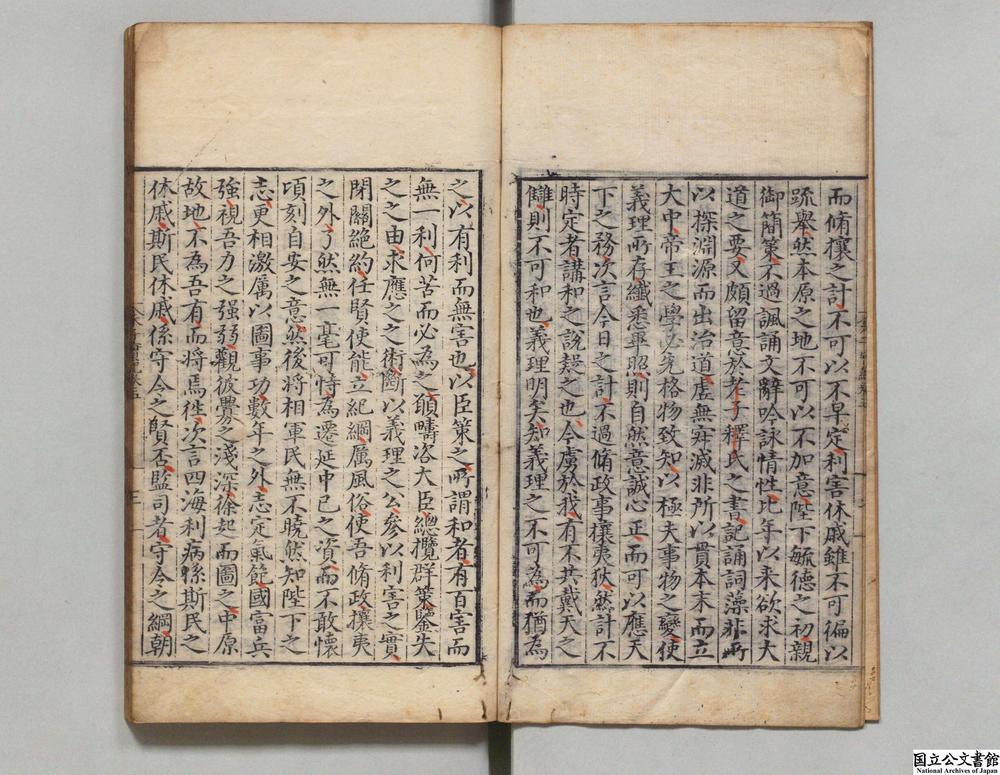 而脩攘之計不可以不早定利害休戚雖不可徧以
疏舉然本原之地不可以不加意陛下毓德之初親
御簡策不過諷誦文辭吟詠情性比年以来欲求大
道之要又頗留意於老子釋氏之書記誦詞藻非所
以探淵源而出治道虚無寂滅非所以貫本末而立
大中帝王之學必先格物致知以極夫事物之變使
義理所存纖悉畢照則自然意誠心正而可以應天
下之務次言今日之計不過脩政事攘夷狄然計不
時定者講和之說疑之也今虜於我有不共戴天之
讎則不可和也義理明矣知義理之不可為而猶為
之以有利而無害也以臣策之所謂和者有百害而
無一利何苦而必為之願疇咨大臣總攬群策鑒失
之之由求應之之術斷以義理之公參以利害之實
閉關絶約任賢使能立紀綱厲風俗使吾脩政攘夷
之外了然無一毫可恃為遷延中已之資而不敢懷
頃刻自安之意然後將相軍民無不曉然知陛下之
志更相激厲以圖事功數年之外志定氣飽國富兵
強視吾力之强弱觀彼釁之淺深徐起而圖之中原
故地不為吾有而將焉往次言四海利病係斯民之
休戚斯民休戚係守令之賢否監司者守令之綱朝
国立公文書館
National Archives of Japan